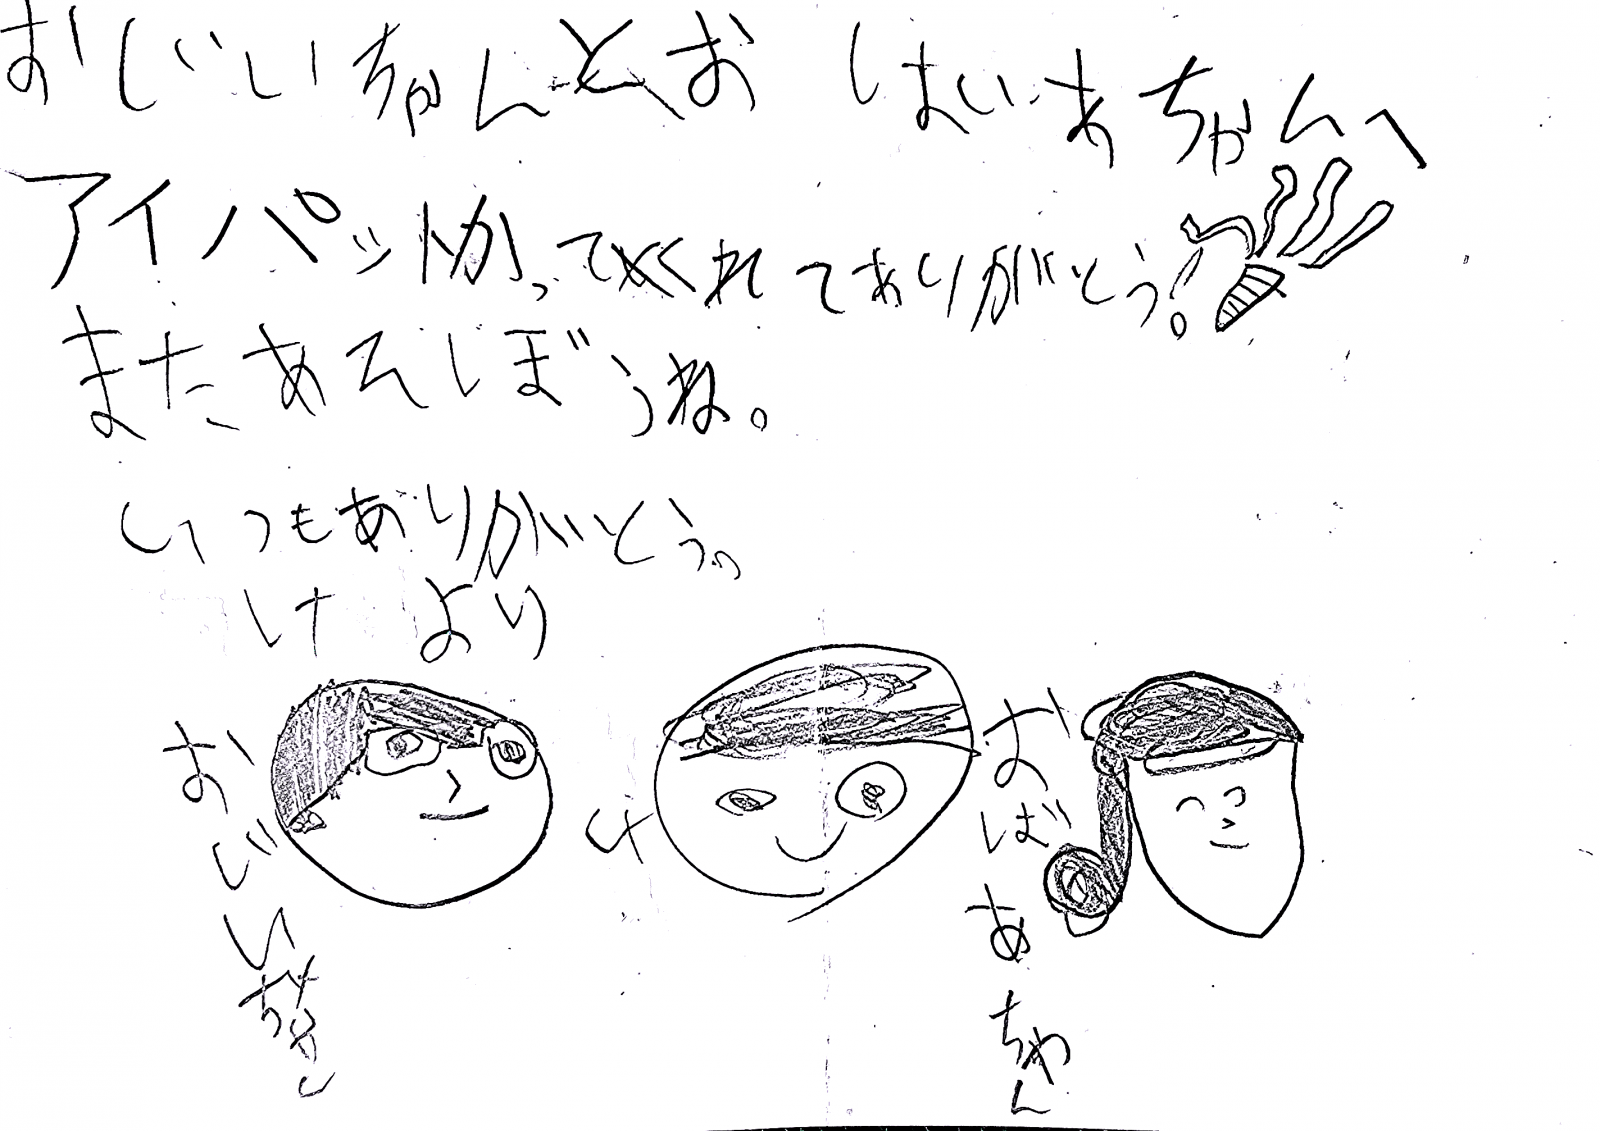 おじいちゃんとお ばいあちゃんへ
アイパットかってくれてありがとう!
またあそぼうね。
いつもありがとう。
けより
おじいちゃん
け
おばあちゃん